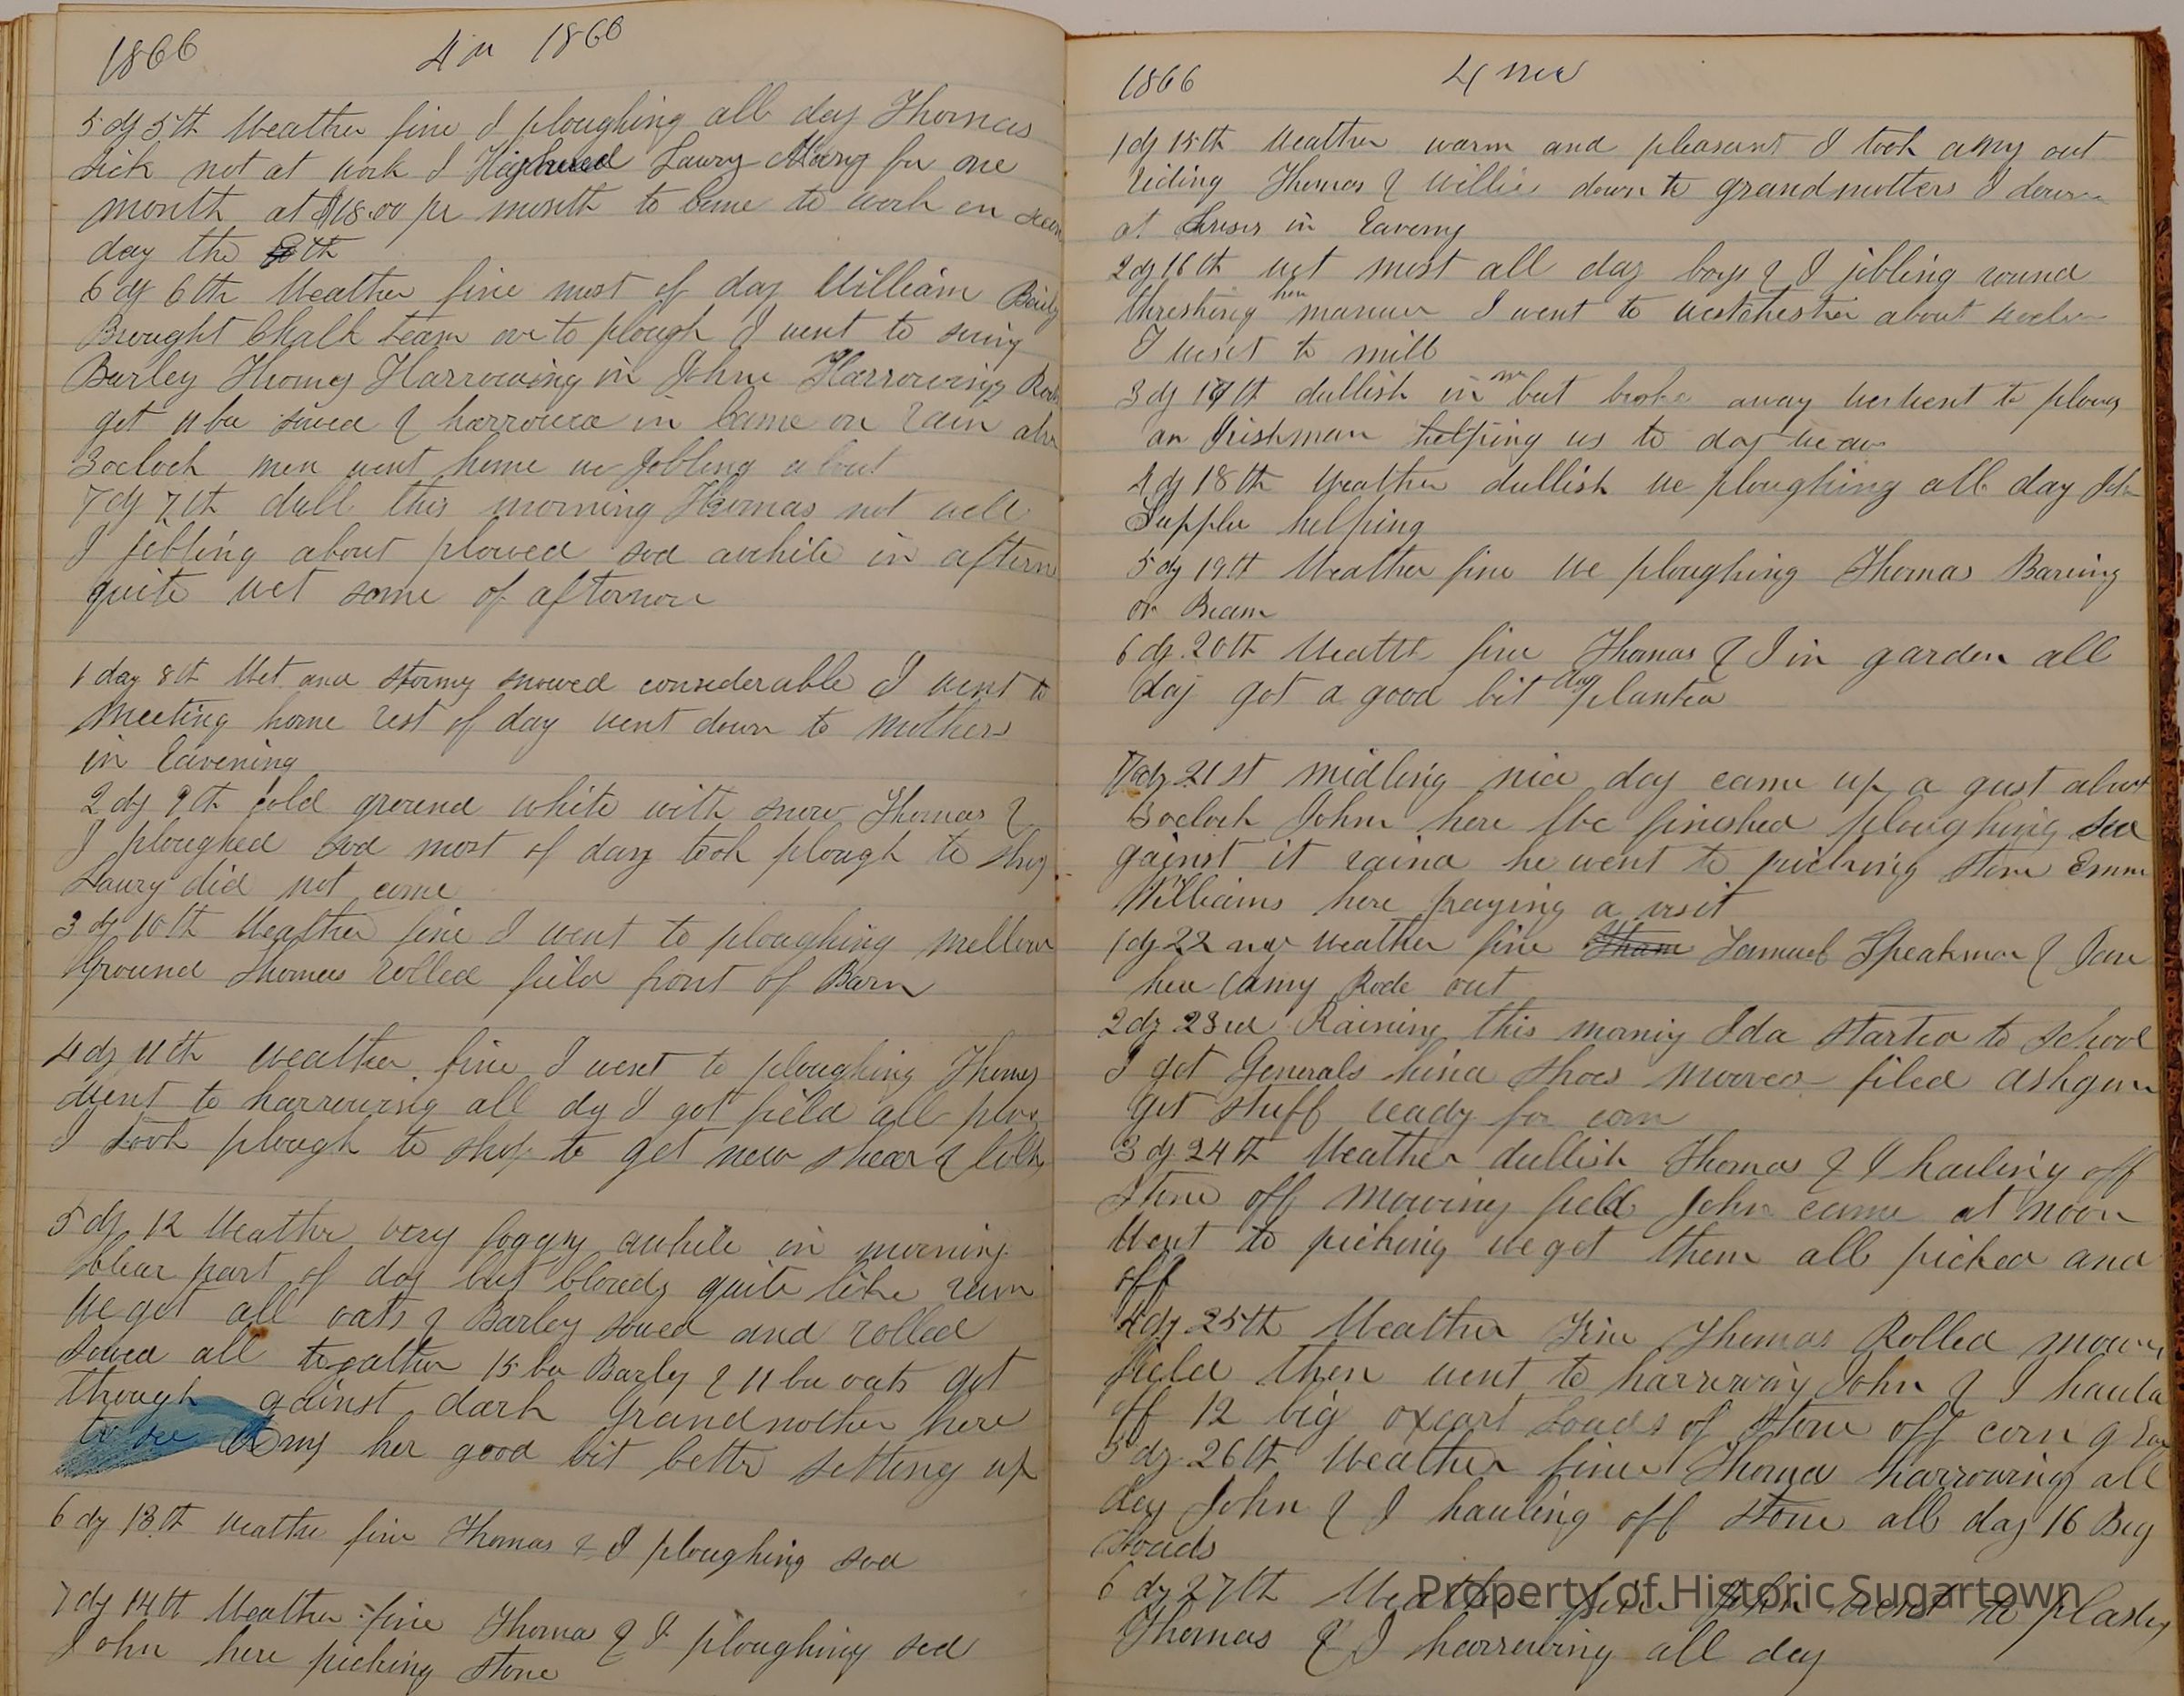 1866 4 m 1866
5 dy 5th Weather fine I ploughing all day Thomas
sick not at work I Lawry for one
month at $18.00 pr month to come to work on
day the 9th
6 dy 6th Weather fine most of day William Baily
Brought Chalk team over to plough I went to
Barley Thomas Harrowing in John Harrowing
get 11 bu sowed & harrowed in Came on rain
3 oclock men went home we Jobling about
7 dy 7th dull this morning Thomas not well
I jobling about plowed sod awhile in aftern
quite wet some of afternoon
1 day 8th Wet and stormy snowed considerable I went to
Meeting home rest of day went down to mothers
in Eavening
2 dy 9th Cold ground white with snow Thomas &
I ploughed Sod most of day took plough to shop
Lawry did not come
3 dy 10th Weather fine I went to ploughing mellow
Ground Thomas rolled field front of Barn
4 dy 11th weather fine I went to ploughing Thomas
went to harrowing all dy I got field all
I took plough to shop to get new shear &
5 dy 12 Weather very foggy awhile in morning
Clear part of day but clouds quite like rain
We got all oats & Barley sowed and rolled
Sowed all to gather 15 bu Barley & 11 bu oats got
through gainst dark Grandmother here
to see Amy her good bit better setting up
6 dy 13th weather fine Thomas & I ploughing sod
7 dy 14th Weather fine Thomas & I ploughing sod
John here picking stone
1866 4 mo
1 dy 15th Weather warm and pleasant I took amy out
riding Thomas & Willie down to grandmothers I down
at in Eaveng
2 dy 16th wet most all day boys & I jobling round
threshing hen manure I went to westchester about
I went to mill
3 dy 17th dullish in but broke away went to plowg
an Irishman helping us to day
4 dy 18th Weather dullish we ploughing all day John
Supplee helping
5 dy 19th Weather fine We ploughing Thomas
or Beam
6 dy 20th Weather fine Thomas & I in garden all
day got a good bit planted
7 dy 21st midling nice day came up a gust about
3 oclock John here We finished ploughing sod
gainst it raind he went to picking stone Emm
Williams here paying a visit
1 dy 22 weather fine Tham Samuel Speakman & Jane
here Camy Rode out
2 dy 23rd Raining this mornig Ida started to school
I got Generals hind shoes mooved filed
get stuff ready for corn
3 dy 24th Weather dullish Thomas & I hauling off
Stone off mowing field John came at noon
Went to picking we got them all picked and
off
4 dy 25th Weather Fine Thomas Rolled mowing
field then went to harrowing John & I hauld
off 12 big oxcart Loads of Stone off corn
5 dy 26th Weather fine Thomas harrowing all
day John & I hauling off Stone all day 16 Big
Loads
6 dy 27th Weather fine John went to
Thomas & I harrowing all day
Property of Historic Sugartown